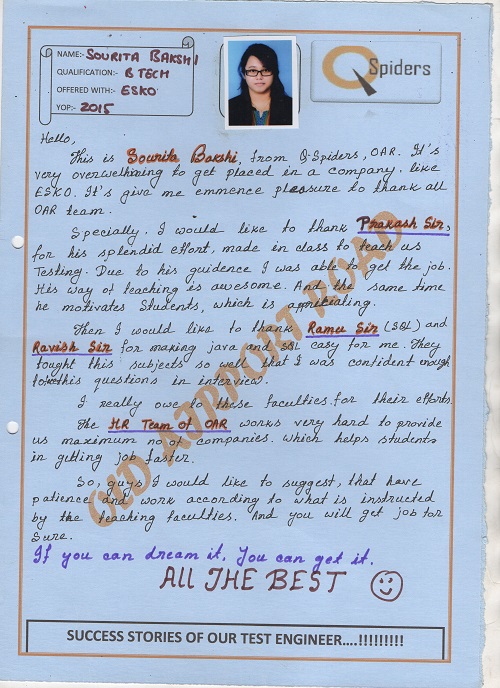 NAME:- SOURITA BAKSHI
QUALIFICATION:- B TECH
OFFERED WITH:- ESKO
YOP:- 2015
QSpiders
Hello,
This is Sourita Bakshi, from Q-Spiders, OAR. It's
very overwhelming to get placed in a company. like
ESKO. It's give me emmence pleasure to thank all
OAR team.
Specially. I would like to thank Prakash Sir,
for his splendid effort, made in class to teach us
Testing. Due to his guidence I was able to get the job.
His way of teaching is awesome. And the same time
he motivates Students, which is appritiating.
Then I would like to thank Ramu Sir (SQL) and
Ravish Sir for making java and SQL easy for me. They
tought this subjects so well that I was confident enough
this questions in interview.
I really owe to these faculties for their efforts.
The HR Team of OAR works very hard to provide
us maximum no of companies. which helps students
in getting job faster.
So, guys I would like to suggest, that have
patience and work according to what is instructed
by the teaching faculties. And you will get job for
Sure.
If you can dream it, You can get it.
All THE BEST
OLD AIRPORT ROAD
SUCCESS STORIES OF OUR TEST ENGINEER....!!!!!!!!!